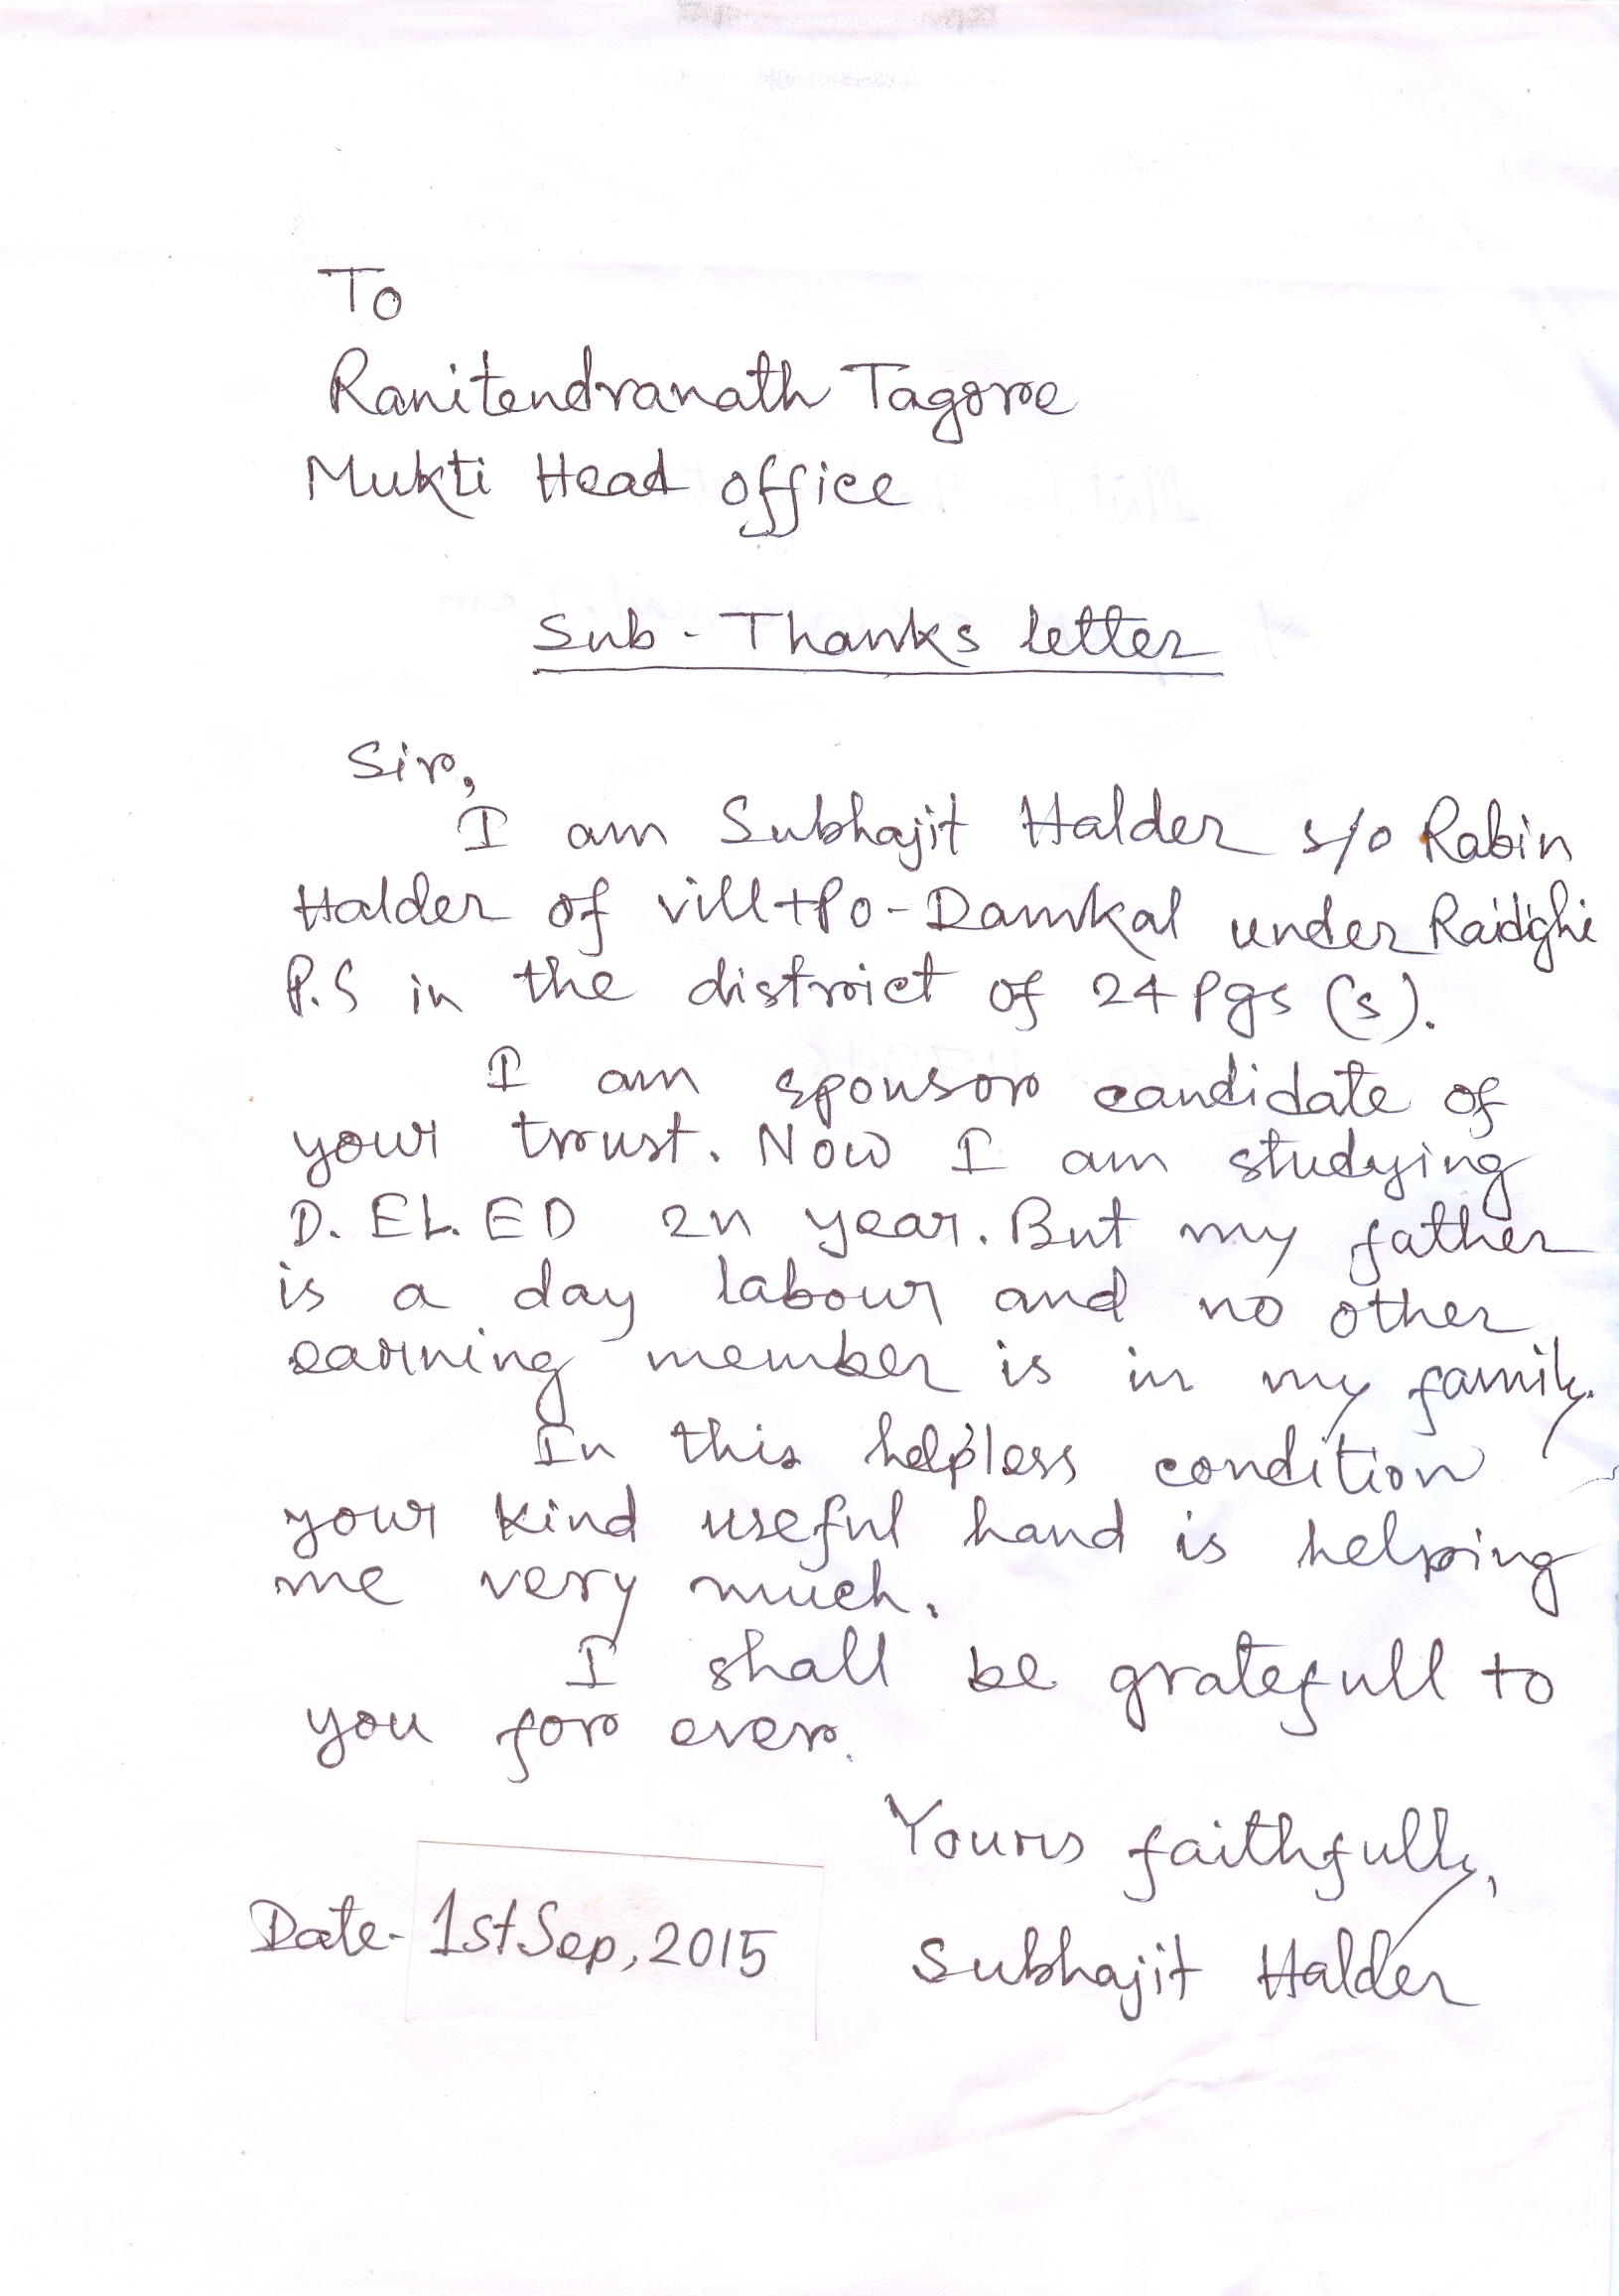 To
Ranitendranath Tagore
Mukti Head office
Sub - Thanks letter
Sir,
I am Subhajit Halder s/o Rabin
Halder of vill+Po-Damkal under Raidghi
P.S in the district of 24 Pgs (s).
I am sponsor candidate of
your trust. Now I am studying
D. EL. ED 2n year. But my father
is a day labour and no other
earning member is in my family.
In this helpless condition
your kind useful hand is helping
me very much.
I shall be gratefull to
you for ever.
Yours faithfully,
Date- 1st Sep, 2015
Subhajit Halder